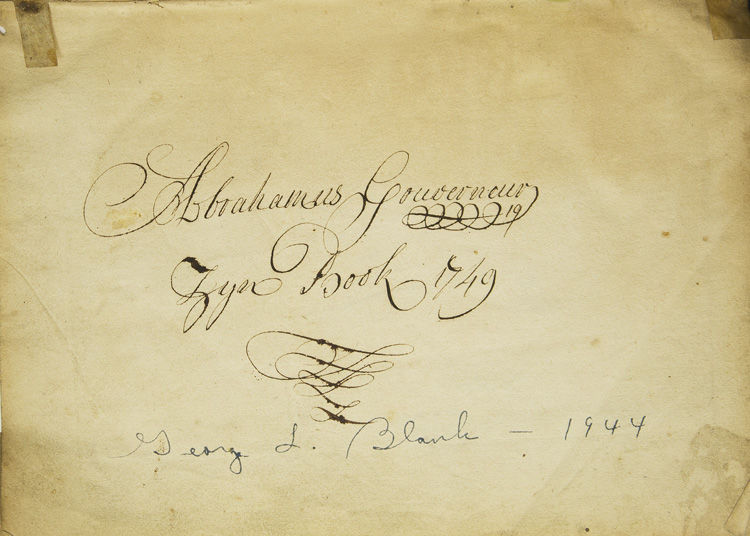 Abrahamus Gouverneur
19
Zyn Book 1749
Georg L. Blank – 1944